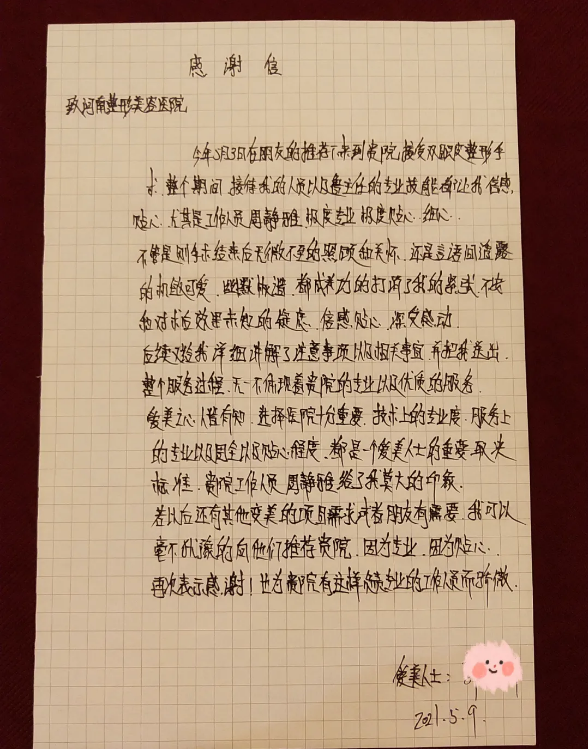 感谢信
致河南整形美容医院
今年5月3日在朋友的推荐下来到贵院,接受双眼皮整形手
术.整个期间,接待我的人员以及鲁主任的专业技能都让我倍感
贴心.尤其是工作人员周静雅,极度专业极度贴心.细心.
不管是刚手术结束后无微不至的照顾和关怀.还是言语间透露
的机敏可爱.幽默俶谐.都成功的打消了我的紧张.不安
和对术后效果未知的疑虑.倍感贴心,深受感动.
后续又给我详细讲解了注意事项以及相关事宜,并把我送出.
整个服务过程.无一不体现着贵院的专业以及优质的服务.
爱美之心人皆有知.选择医院十分重要.技术上的专业度.服务上
的专业以及周全以及贴心程度.都是一个爱美人士的重要取决
标准.贵院工作人员周静雅给了我莫大的印象.
若以后还有其他变美的项目需求或者朋友有需要.我可以
毫不犹豫的向他们推荐贵院.因为专业.因为贴心..
再次表示感谢!也为贵院有这样负责专业的工作人员而骄傲.
爱美人士:
2021.5.9.